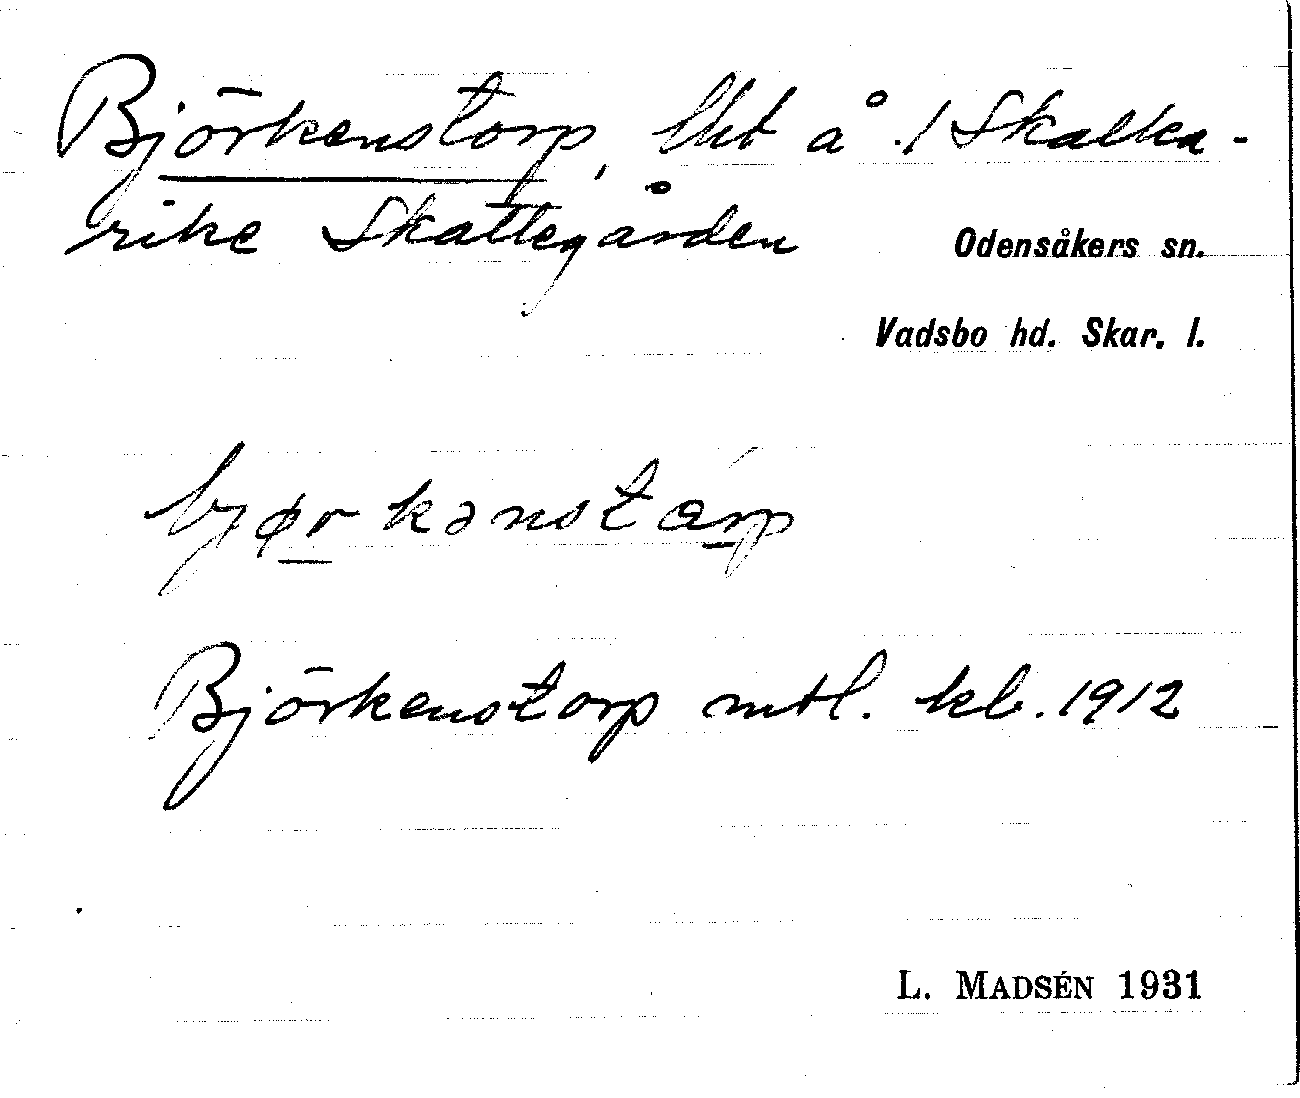 Björkenstorp, lht å 1 Skalka-
rike Skattegården
Odensåkers sn.
Vadsbo hd. Skar. l.
bjørkənstárp
Björkenstorp mtl. kb. 1912
L. MADSÉN 1931